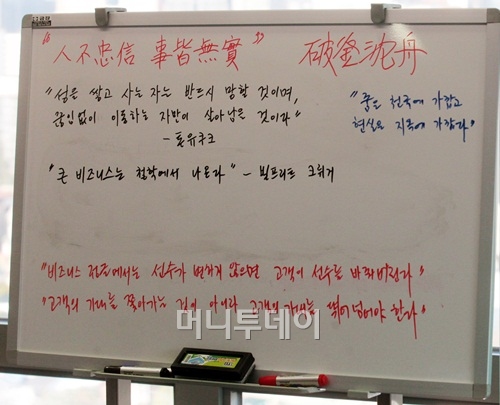 "人不忠信 事皆無實" 破釜沈舟
"성을 쌓고 사는 자는 반드시 망할 것이며,
끊임없이 이동하는 자만이 살아남을 것이다"
- 톤유쿠크
"꿈은 천국에 가깝고
현실은 지옥에 가깝다"
"큰 비즈니스는 철학에서 나온다" - 빌프리트 크뤼거
"비즈니스 전쟁에서는 선수가 변하지 않으면 고객이 선수를 바꿔버린다"
"고객의 기대를 쫓아가는 것이 아니라 고객의 기대를 뛰어넘어야 한다"
머니투데이